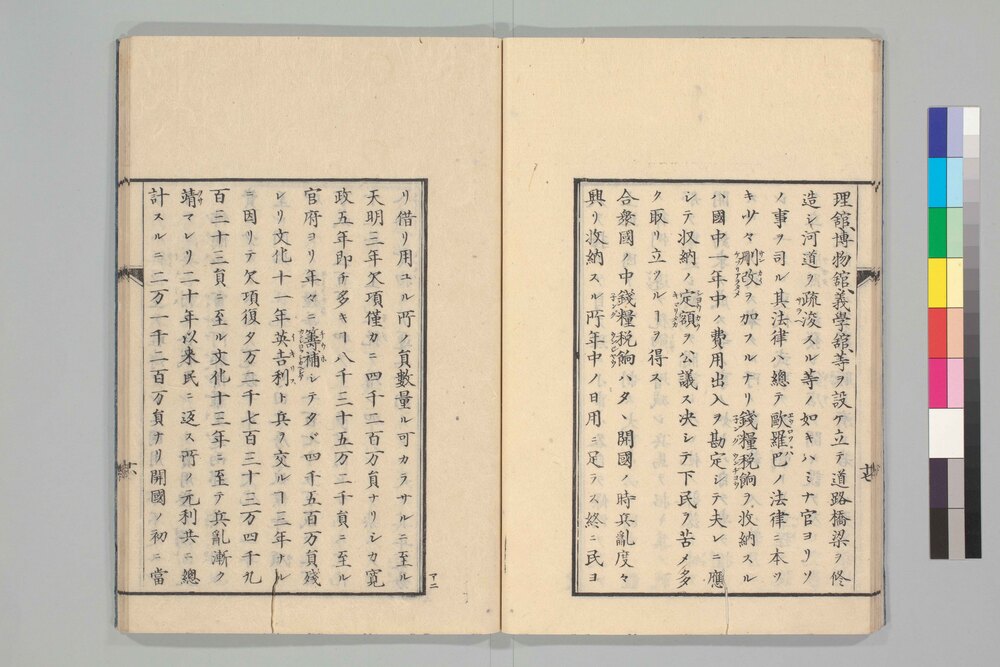 理舘博物舘義學舘等ヲ設ケ立テ道路橋梁ヲ修
造シ河道ヲ疏浚スル等ノ如キハミナ官ヨリソ
ノ事ヲ司ル其法律ハ總テ歐羅巴ノ法律ニ本ツ
キ少々刪改ヲ加フルナリ錢糧税餉ヲ收納スル
ハ國中一年中ノ費用出入ヲ勘定シテ夫レニ應
シテ収納ノ定額ヲ公議ス决シテ下民ヲ苦メ多
ク取リ立ツルヿヲ得ス
合衆國ノ中錢糧税餉ハタヽ開國ノ時兵亂度々
興リ收納スル所年中ノ日用ニ足テス終ニ民ヨ
リ借リ用ユル所ノ貟數量ル可カラサルニ至ル
天明三年欠項僅カニ四千二百万貟ナリシカ寛
政五年即チ多キヿ八千三十五万二千貟ニ至ル
官府ヨリ年々ニ籌補シテタヾ四千五百万貟殘
レリ文化十一年英吉利ト兵ヲ交ルヿ三年ナル
ニ因リテ欠項復タ万二千七百三十三万四千九
百三十三貟ニ至ル文化十三年ニ至テ兵亂漸ク
靖マレリ二十年以来民ニ返ス所ノ元利共ニ總
計スルニ二万一千二百万貟ナリ開國ノ初ニ當